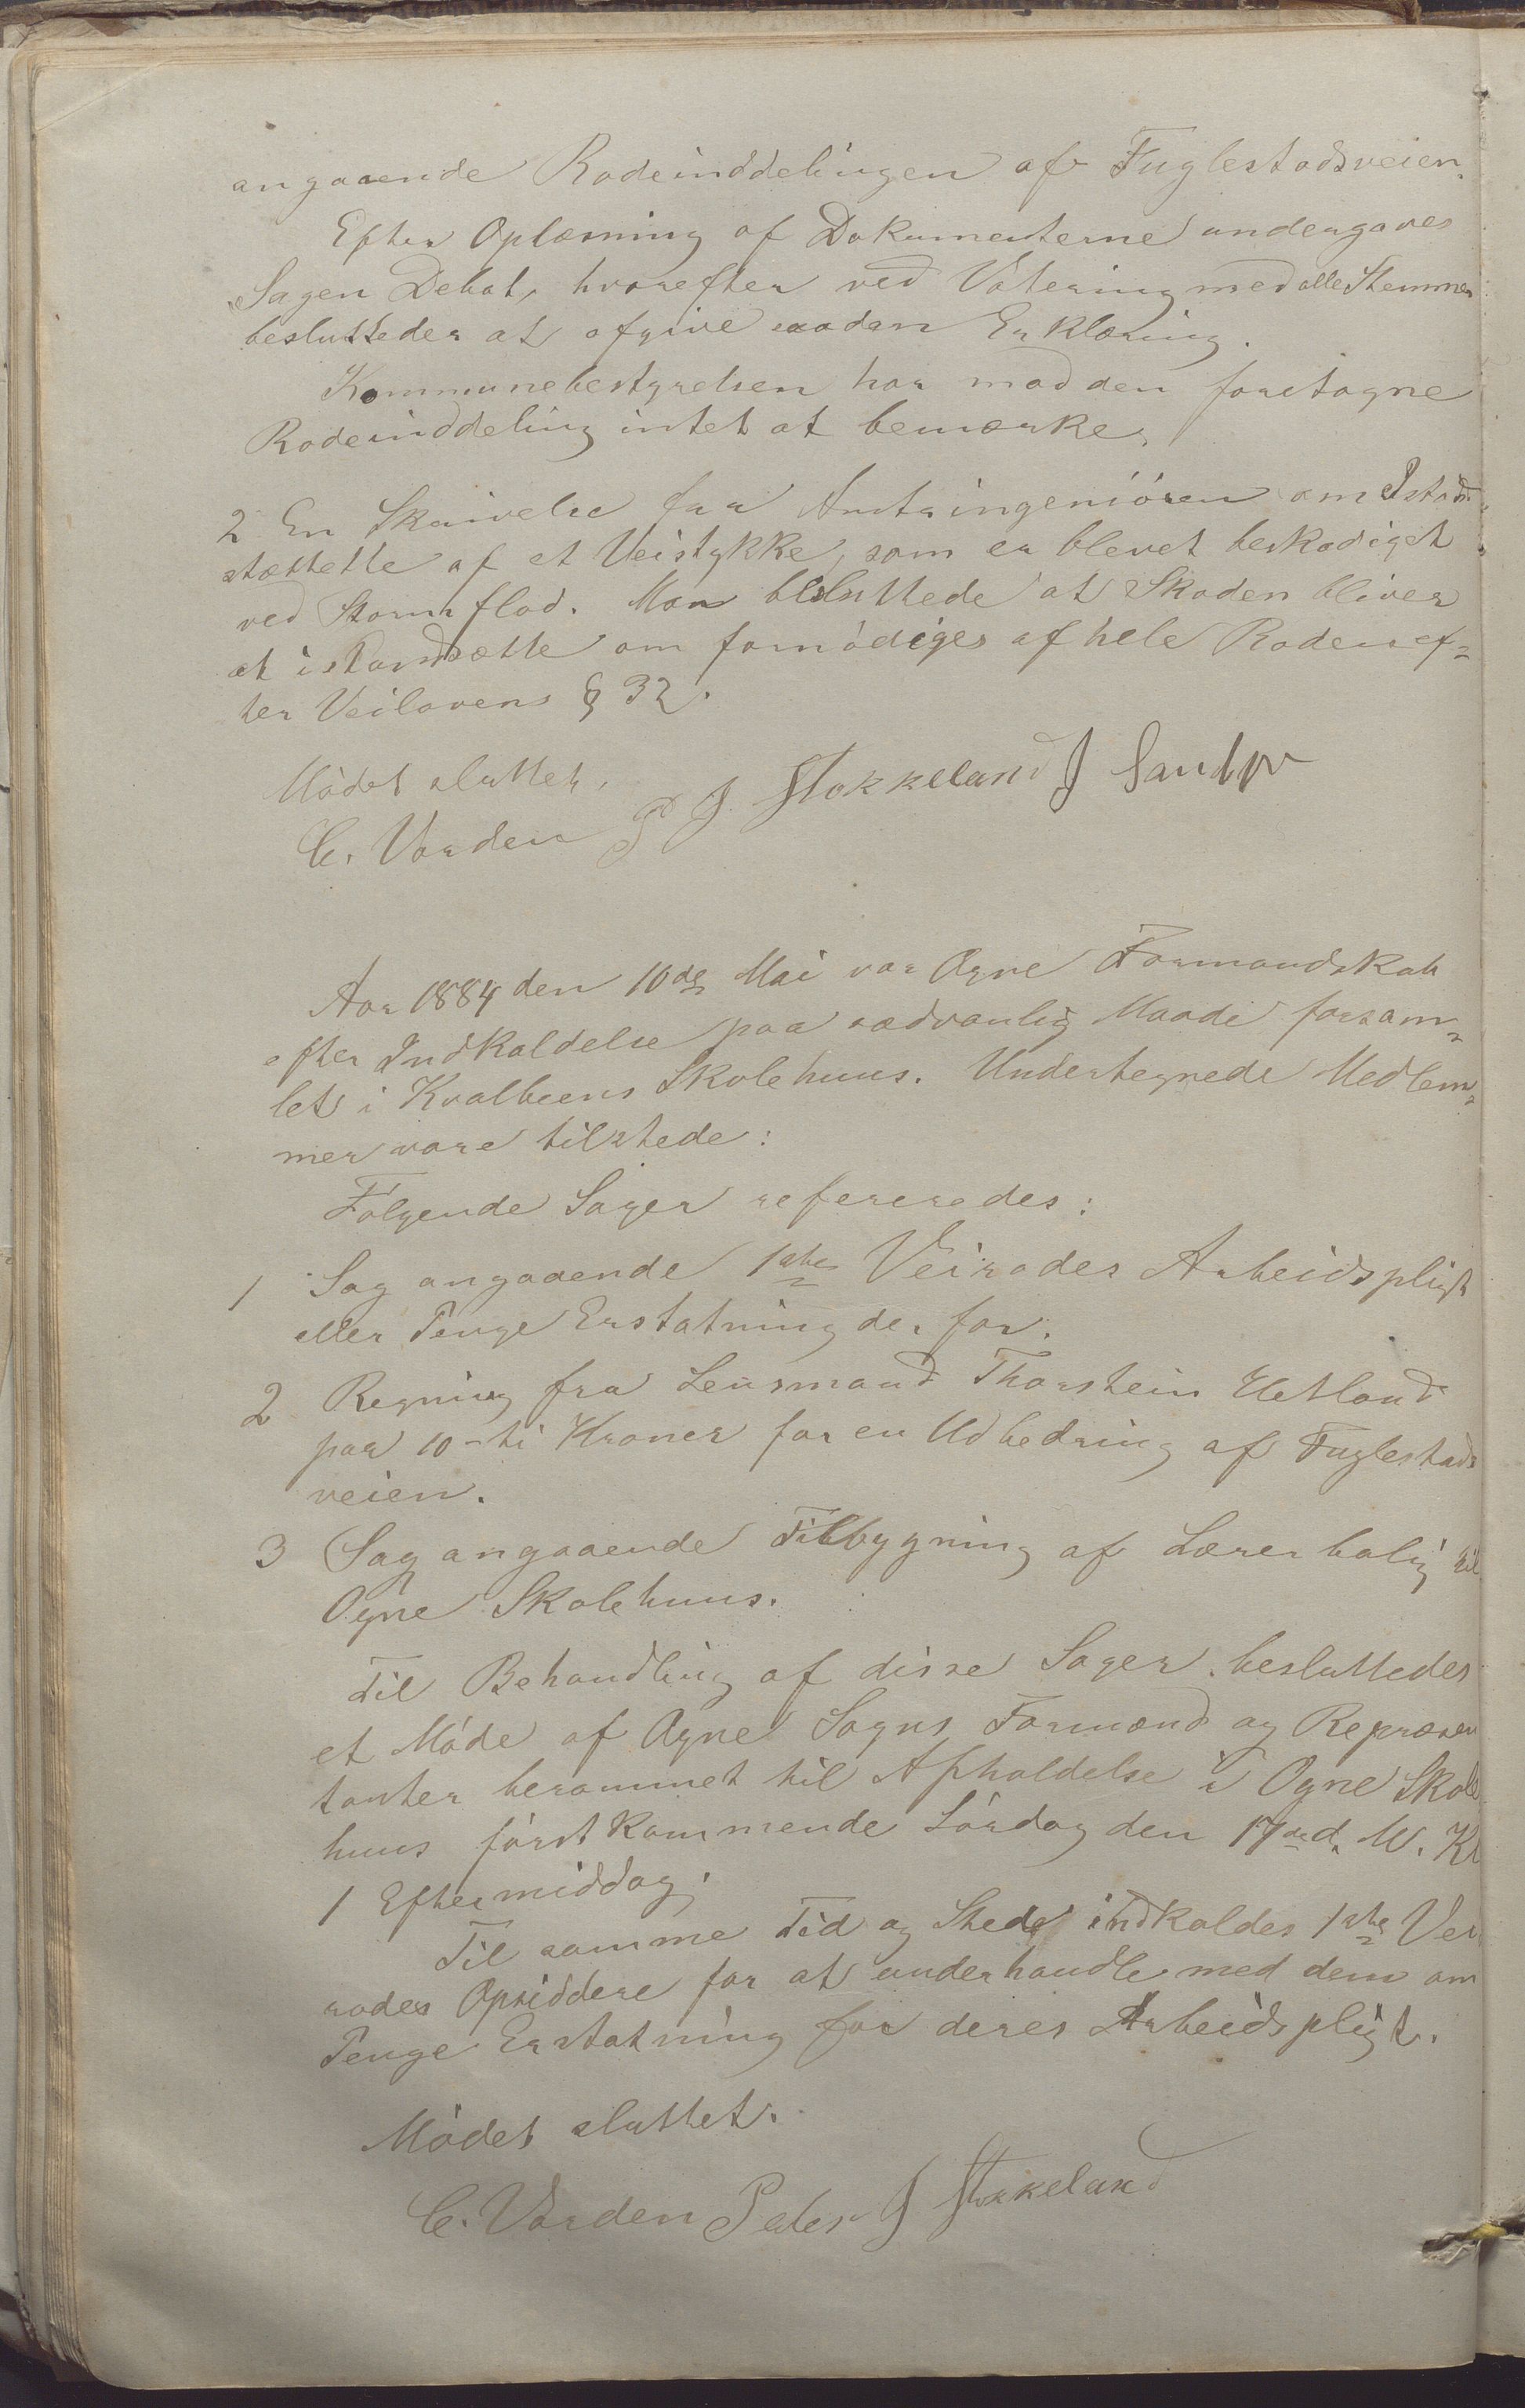 angaaende Rodeinddelingen af Fuglestadsveien.
Efter Oplæsning af Dokumenterne undergaves
Sagen Debat, hvorefter ved Votering med alle Stemmer
besluttedes at afgive saadan Erklæring.
Kommunebestyrelsen har mod den foretagne
Rodeinddeling intet at bemærke.
2 En Skrivelse fra Amtsingeniören om Istand
sættelle af et Veistykke, som er blevet beskadiget
ved Stormflod. Man besluttede at Skaden bliver
at istandsætte om fornödiges af hele Roden ef-
ter Veilovens § 32.
Mödet sluttet.
C. Varden P J Stokkeland J Sandve
Aar 1884 den 10de Mai var Ogne Formandskab
efter Indkaldelse paa sædvanlig Maade forsam-
let i Kvalbeens Skolehuus. Undertegnede Medlem-
mer vare tilstede:
Fölgende Sager refereredes:
1 Sag angaaende 1ste Veirodes Arbeidspligt
eller Penge Erstatning derfor.
2 Regning fra Lensmand Thorstein Hetland
paa 10 - ti Kroner for en Udbedring af Fuglestads
veien.
3 Sag angaaende Tilbygning af Lærerbolig til
Ogne Skolehuus.
Til Behandling af disse Sager besluttedes
et Möde af Ogne Sogns Formænd og Repræsen
tanter berammet til Afholdelse i Ogne Skole
huus förstkommende Lördag den 17de d. M. Kl
1 Eftermiddag.
Til samme Tid og Sted indkaldes 1ste Vei
rodes Opsiddere for at underhandle med dem om
Penge Erstatning for deres Arbeidspligt.
Mödet sluttet.
C. Varden Peder J Stokkeland